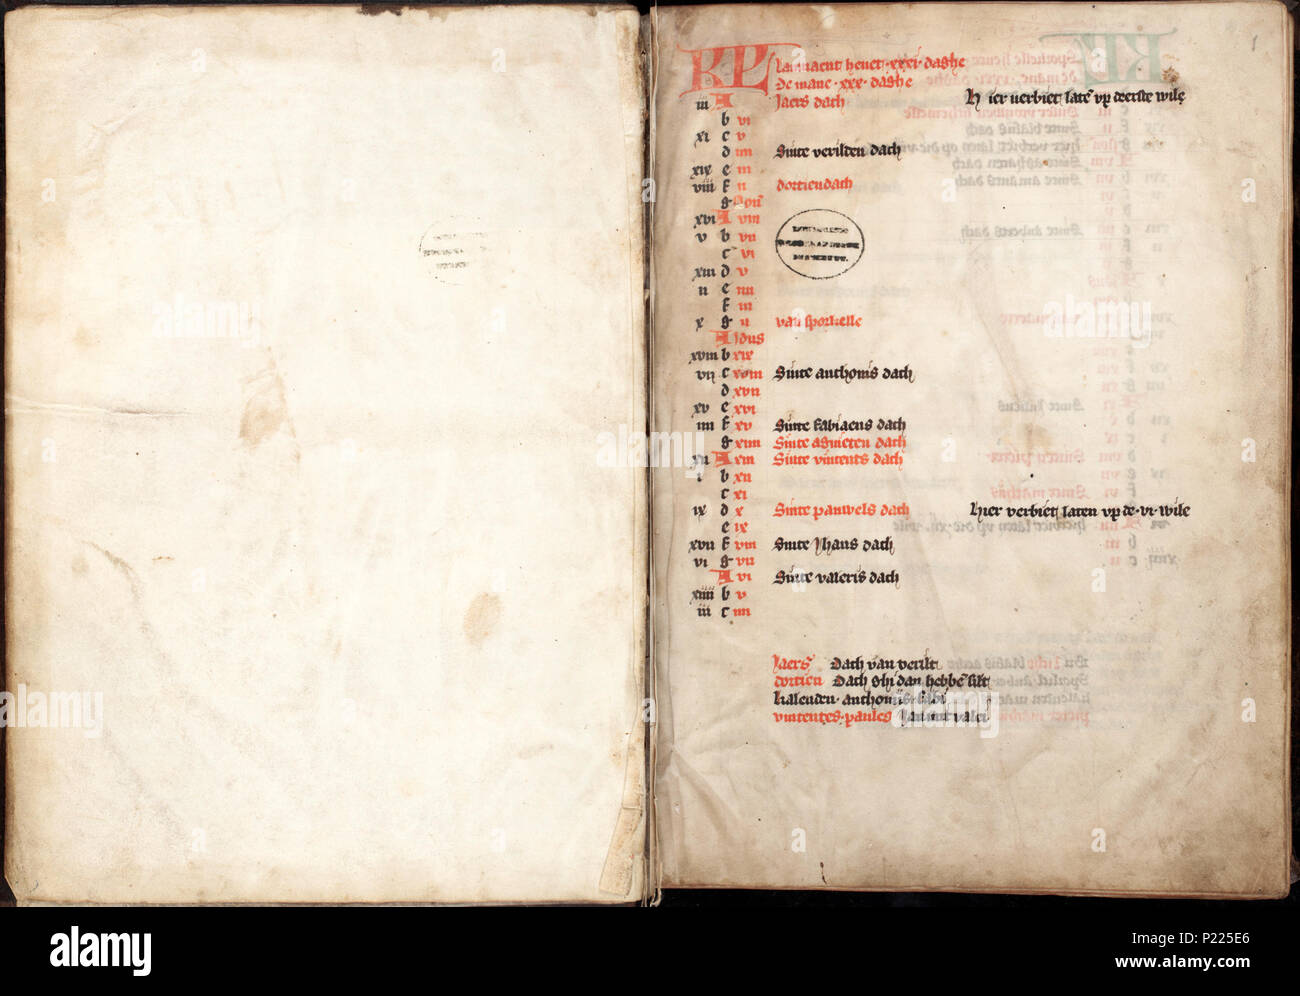 1
KL Lanmaent hevet ·xxxi· daghe
De mane ·xxx· daghe
iii A Jaers dach Hier verbiet latē vp deerste wile
b vi
xi c v
d iiii Sinte verilden dach
xix e iii
viii f ii dortiendach
g Non̄
xvi A viii
v b vii
c vi
xiii d v
ii e iiii
f iii
x g ii van sporkelle
A Jdus
xviii b xix
vii c xviii Sinte anthonis dach
d xvii
xv e xvi
iiii f xv Sinte fabiaens dach
g xiiii Sinte agnieten dach
xii A xiii Sinte vintents dach
i b xii
c xi
ix d x Sinte pauwels dach Hier verbiet laten vp de ·vi· wile
e ix
xvii f viii Sinte Jhans dach
vi g vii
A vi Sinte valeris dach
xiiii b v
iii c iiii
Jaers Dach van verilt
dortien Dach ghi dan hebbē silt
kalenden· anthonis· fabi
vintentes· paules
alamy
Image ID: P225E6
www.alamy.com